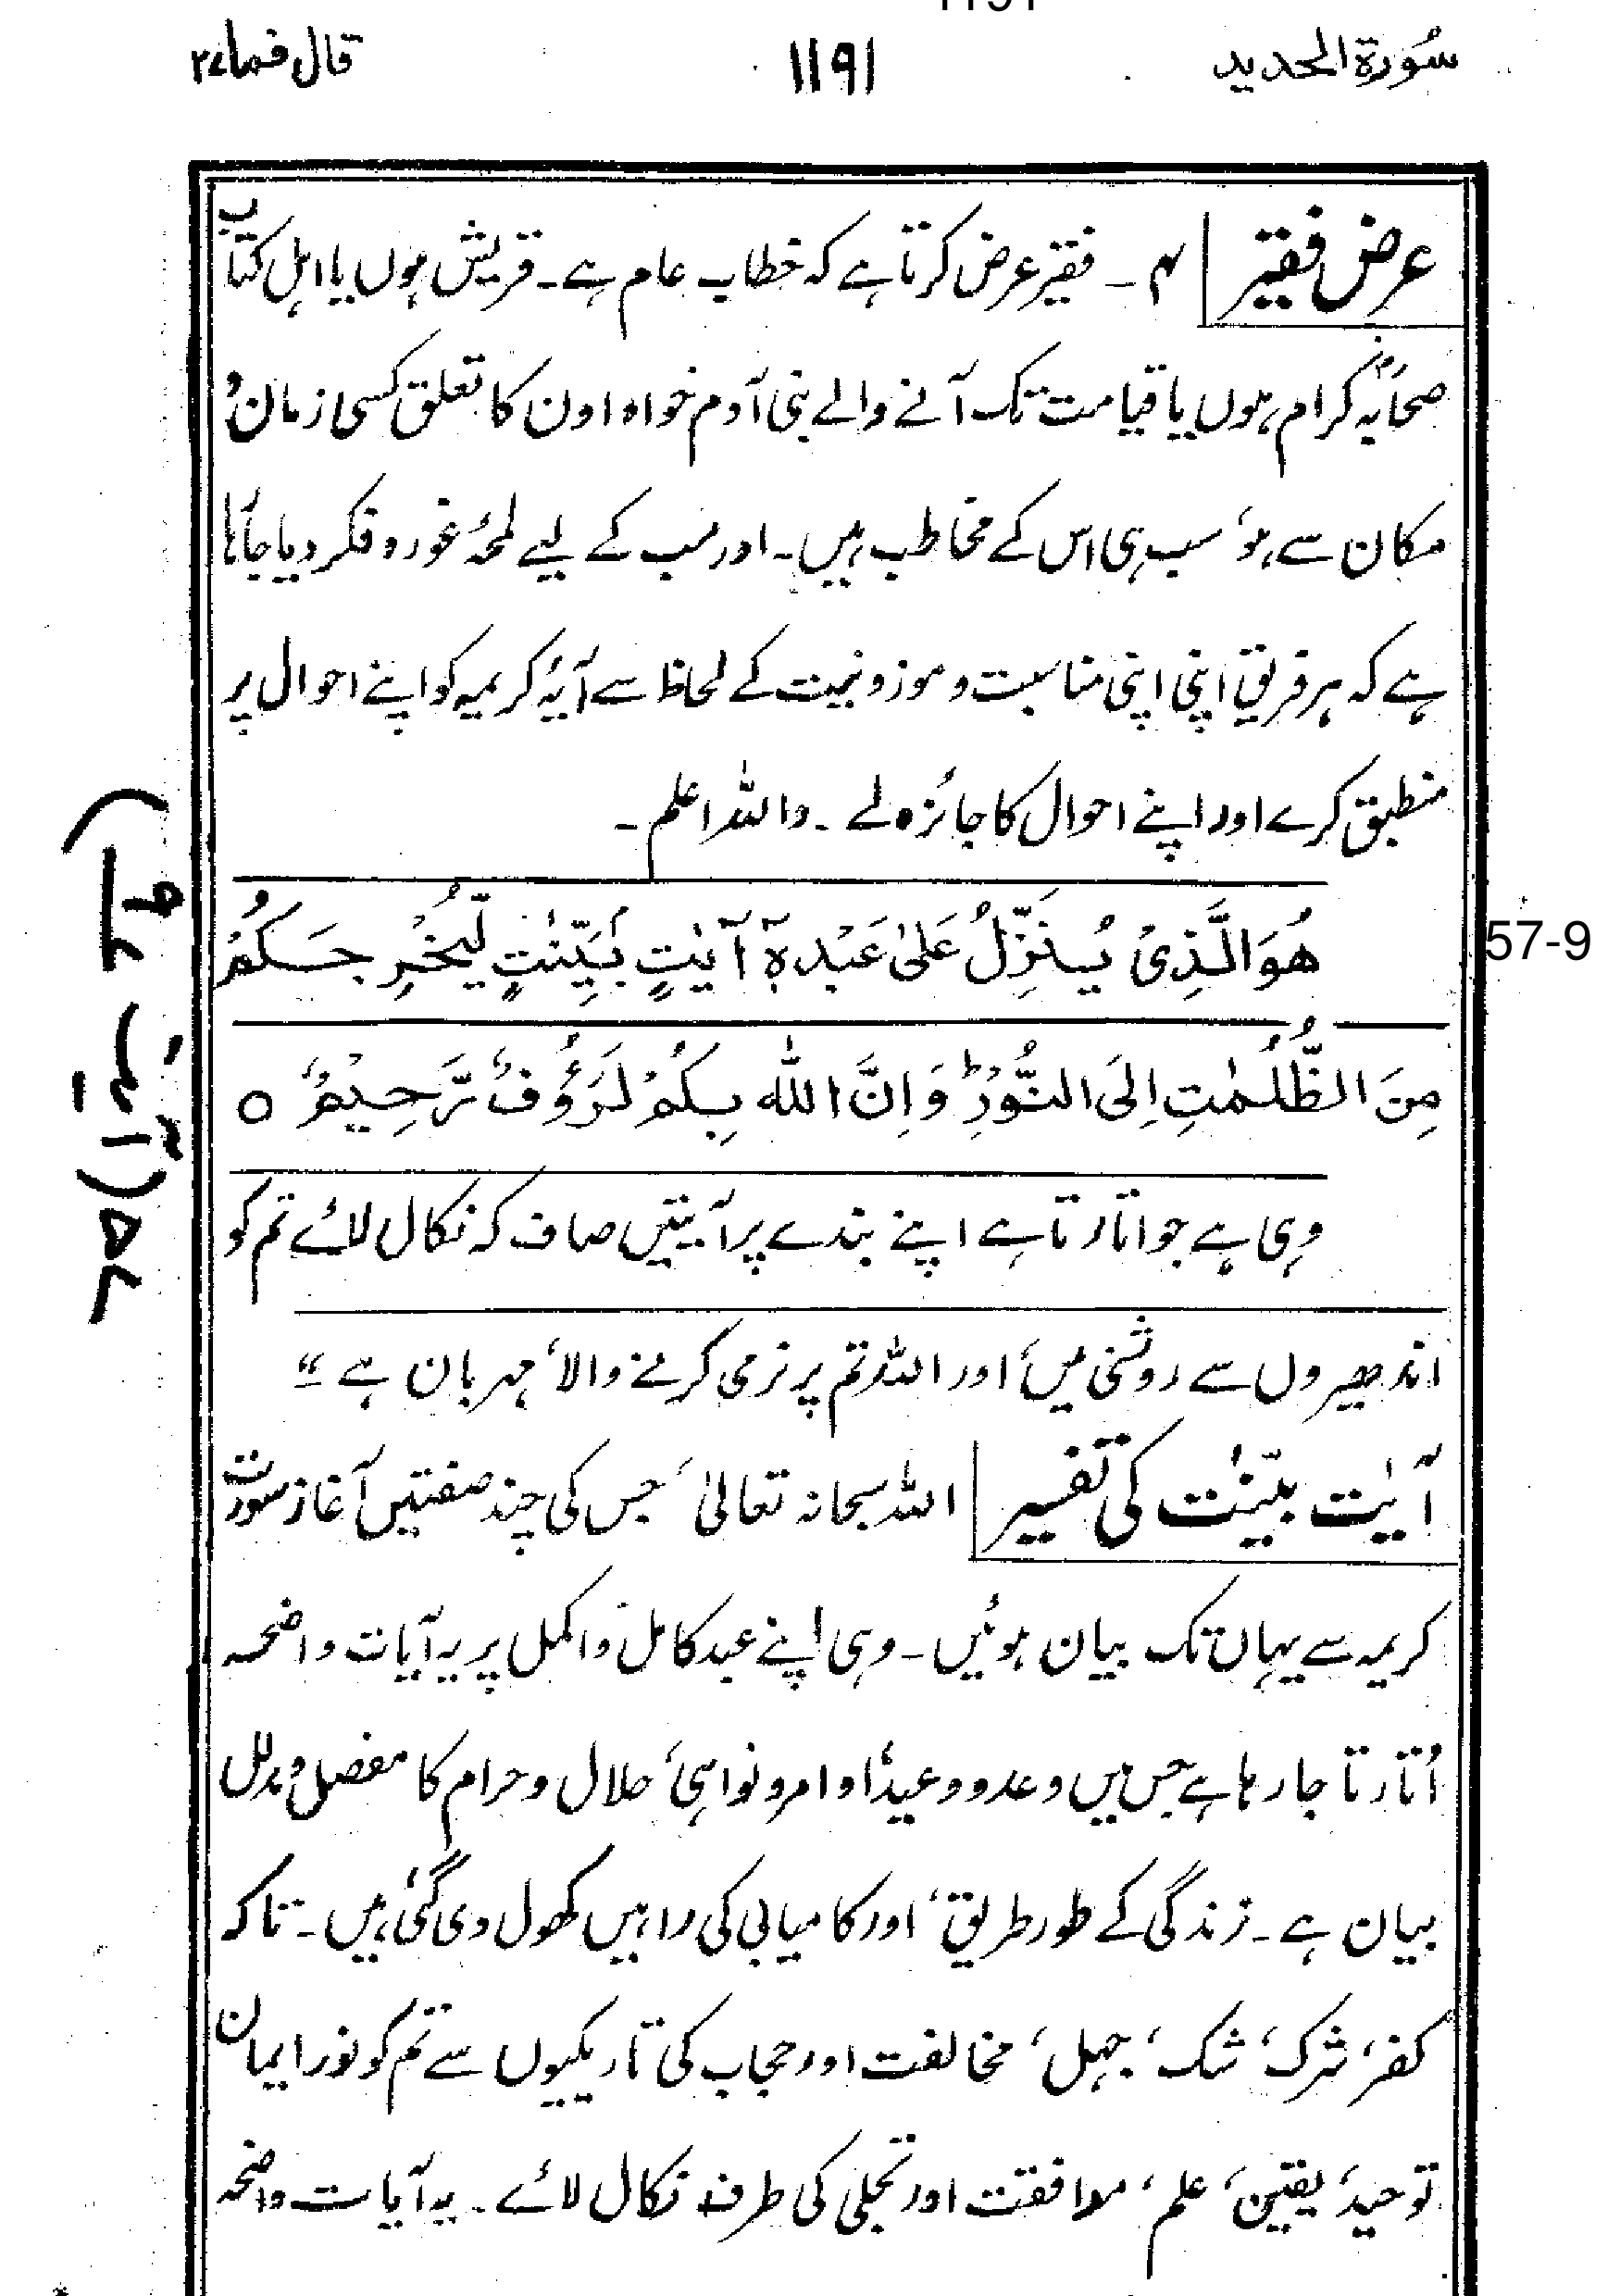 1191
سُورۃ الحدید ۱۱۹۱ قال فما ۲۷
عرض فقیر ۴ ۔ فقیر عرض کرتا ہے کہ خطاب عام ہے۔ قریش ہوں یا اہل کتاب
صحابہؓ کرام ہوں یا قیامت تک آنے والے بنی آدم خواہ اون کا تعلق کسی زمان و
مکان سے ہو، سب ہی اس کے مخاطب ہیں۔ اور سب کے لیے لمحۂ غور و فکر دیا جارہا
ہے کہ ہر فریق اپنی اپنی مناسبت و موزونیت کے لحاظ سے آیۂ کریمہ کو اپنے احوال پر
منطبق کرے اور اپنے احوال کا جائزہ لے ۔ واللہ اعلم ۔
هُوَ الَّذِیْ یُنَزِّلُ عَلٰی عَبْدِهٖۤ اٰیٰتٍۭ بَیِّنٰتٍ لِّیُخْرِجَكُمْ
57-9
مِنَ الظُّلُمٰتِ اِلَی النُّوْرِؕ وَ اِنَّ اللّٰهَ بِكُمْ لَرَءُوْفٌ رَّحِیْمٌ ○
وہی ہے جو اتارتا ہے اپنے بندے پر آیتیں صاف کہ نکال لائے تم کو
اندھیروں سے روشنی میں، اور اللہ تم پر نرمی کرنے والا، مہربان ہے “
آیٰت بیّنٰت کی تفسیر اللہ سبحانہ تعالیٰ، جس کی چند صفتیں آغاز سورت
کریمہ سے یہاں تک بیان ہوئیں۔ وہی اپنے عبد کامل و اکمل پر یہ آیات واضحہ
اُتارتا جا رہا ہے جس میں وعد و وعید، اوامر و نواہی، حلال و حرام کا مفصل و مدلل
بیان ہے ۔ زندگی کے طور طریق، اور کامیابی کی راہیں کھول دی گئی ہیں۔ تاکہ
کفر، شرک، شک، جہل، مخالفت اور حجاب کی تاریکیوں سے تم کو نور ایمان
توحید، یقین، علم، موافقت اور تجلی کی طرف نکال لائے ۔ یہ آیات واضحہ
۵۷ (آیت ۹)